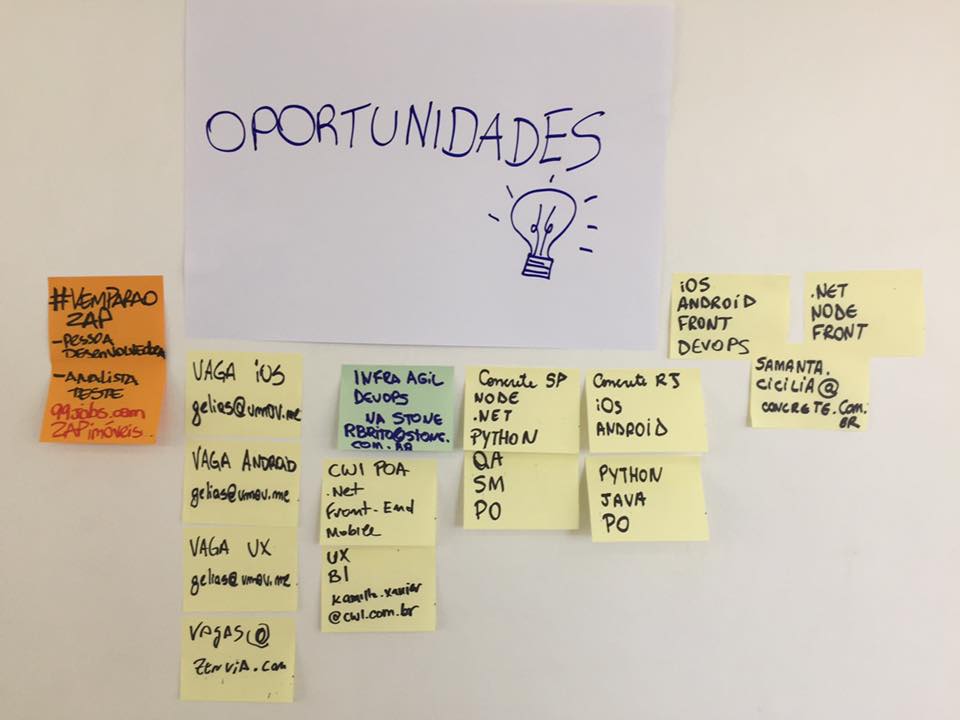 OPORTUNIDADES
#VEMPARAO
ZAP
-PESSOA
DESENVOLVEDORA
-ANALISTA
TESTE
99jobs.com
ZAPimóveis.
VAGA iOS
gelias@umov.me
VAGA ANDROID
gelias@umov.me
VAGA UX
gelias@umov.me
VAGAS@
ZENVIA.com
INFRA AGIL
DEVOPS
NA STONE
RBRITO@STONE.
COM.BR
CWI POA
.Net
Front-End
Mobile
UX
BI
@cwi.com.br
Concrete SP
NODE
.NET
PYTHON
QA
SM
PO
Concrete RJ
iOS
ANDROID
PYTHON
JAVA
PO
iOS
ANDROID
FRONT
DEVOPS
.NET
NODE
FRONT
SAMANTA.
CICILIA@
CONCRETE.COM.
BR